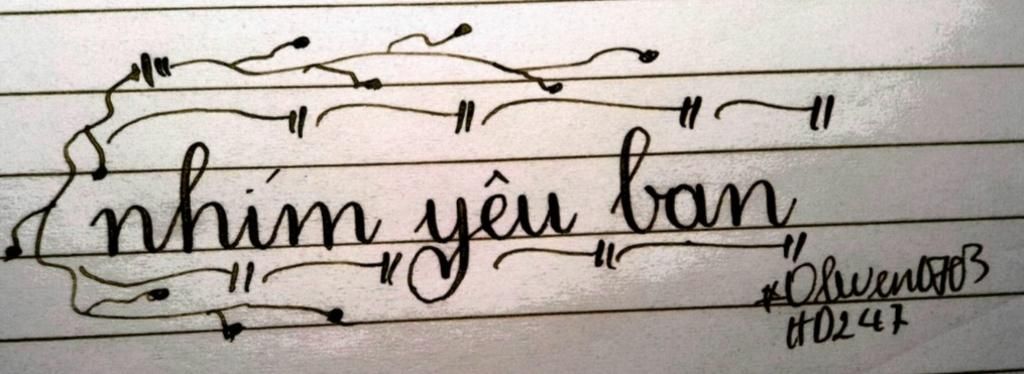 nhím yêu ban
*Olwen0703
HD247